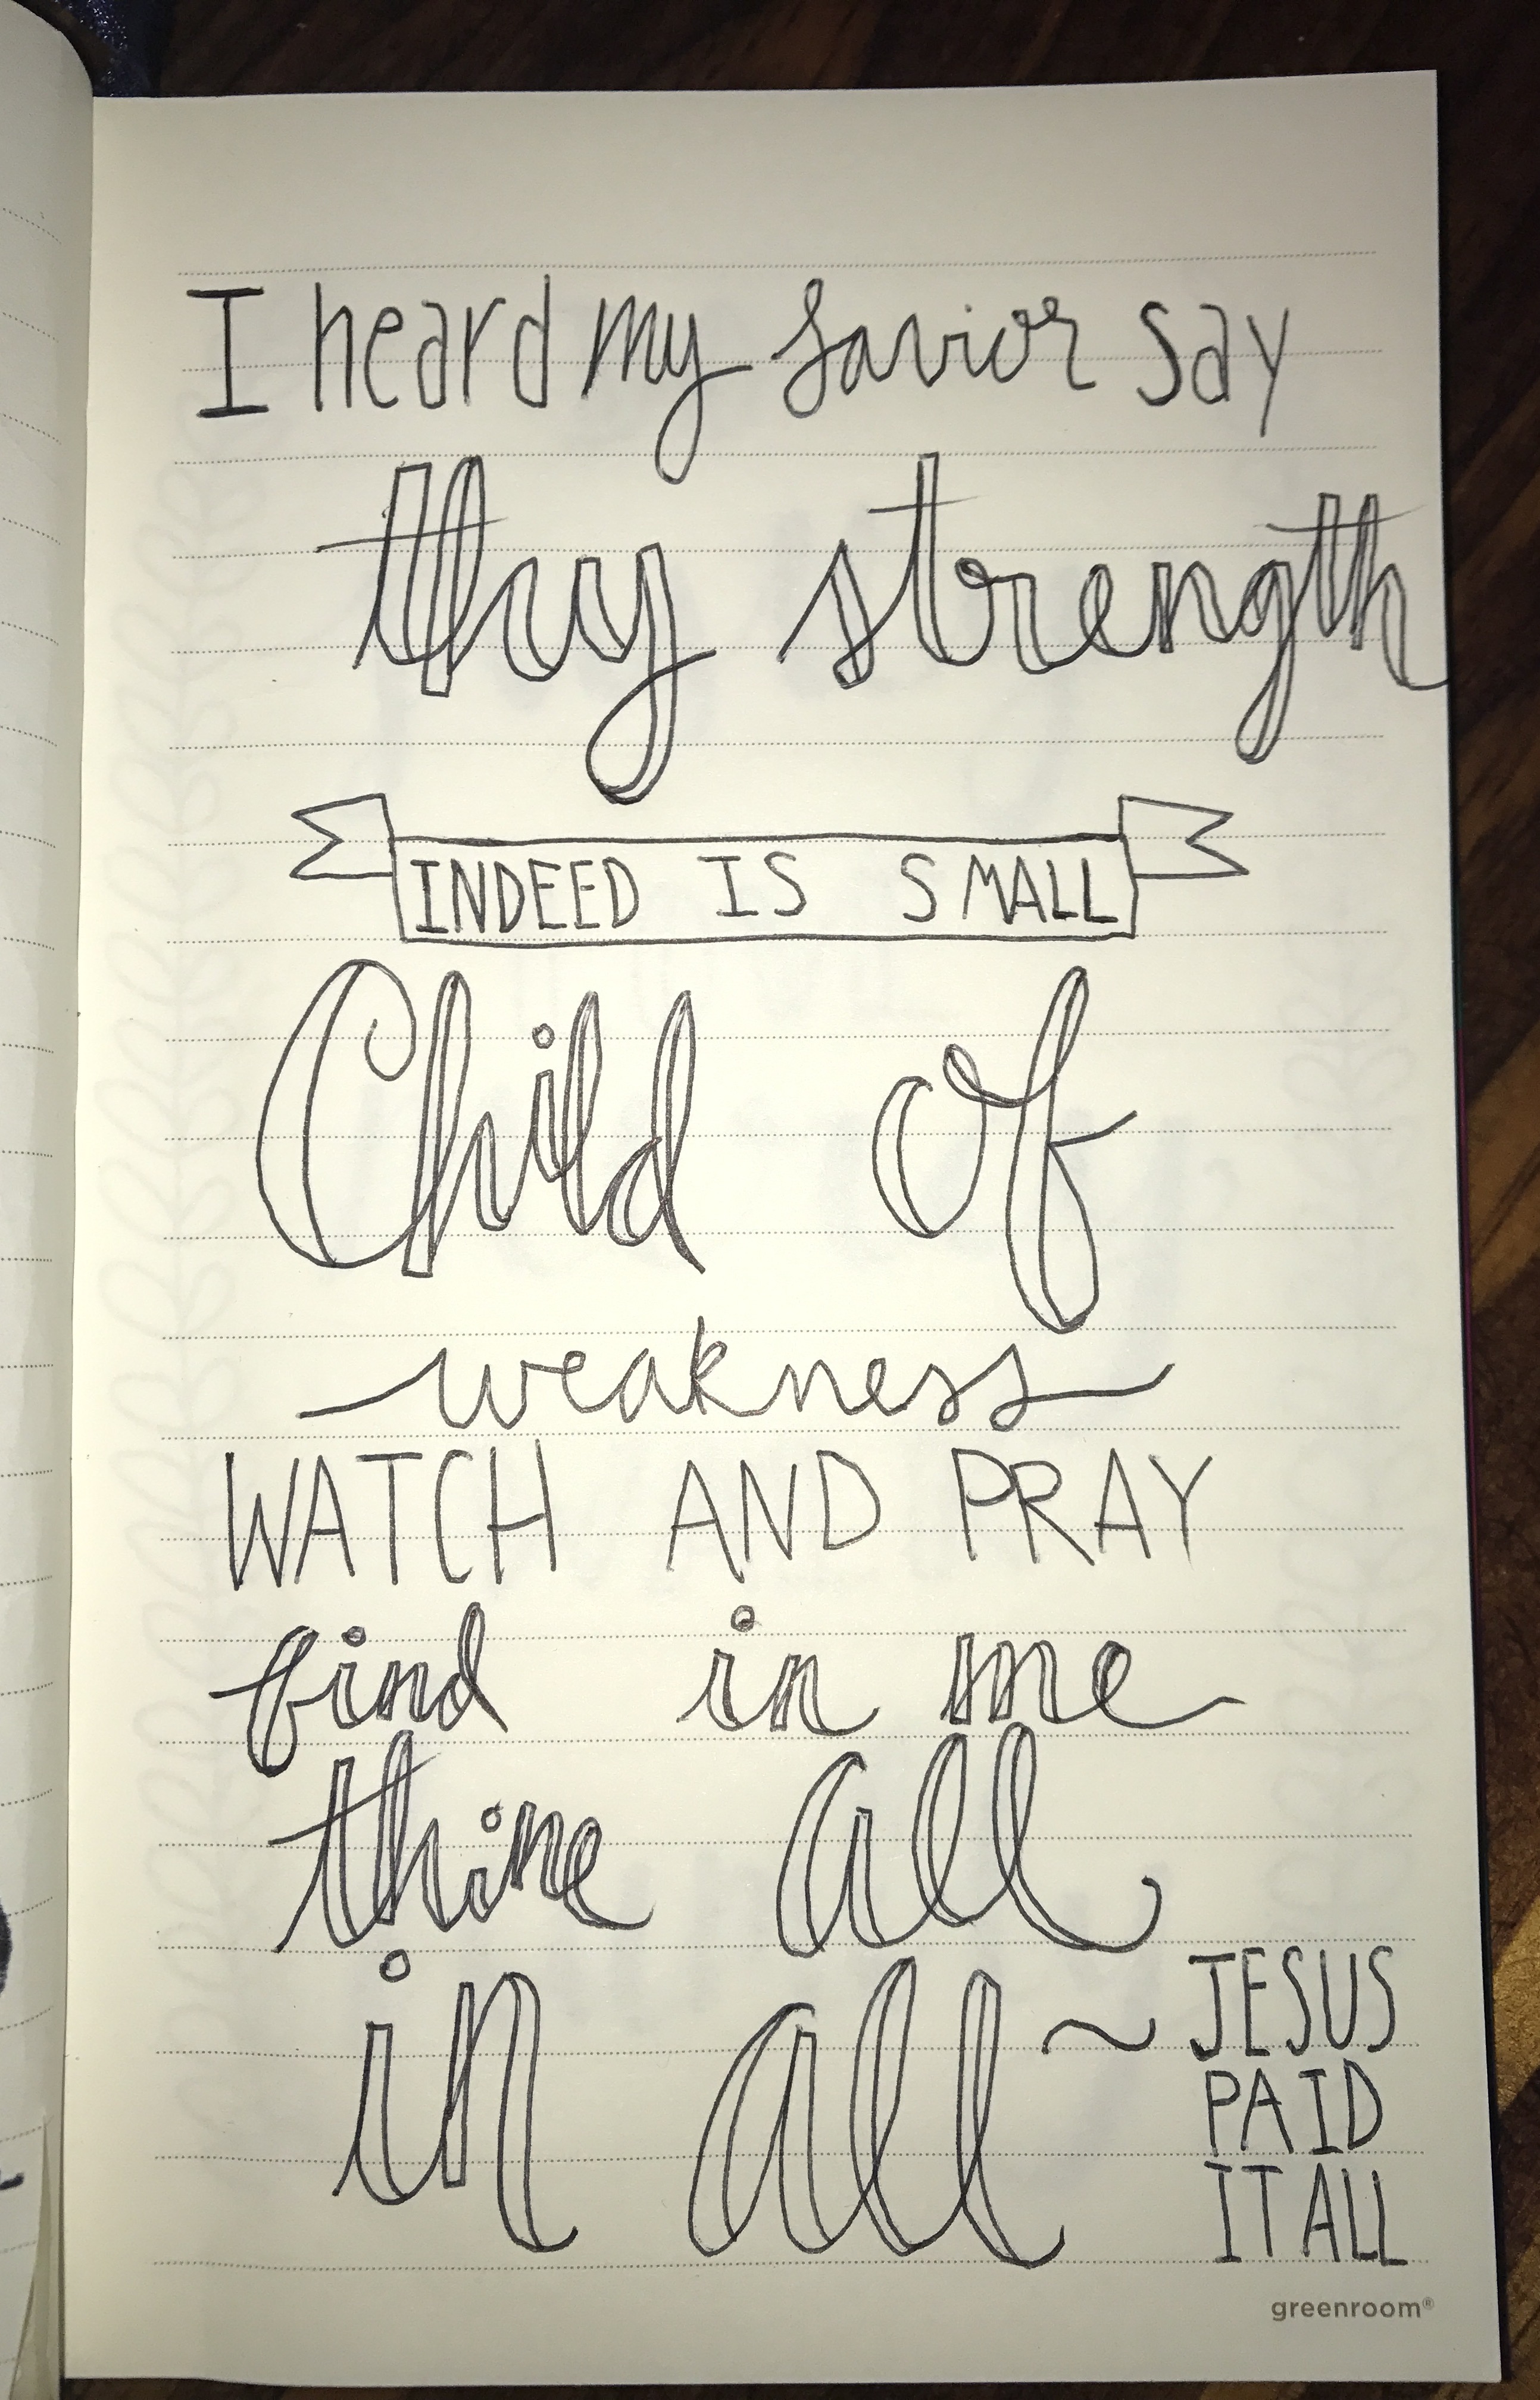 I heard my Savior say
thy strength
INDEED IS SMALL
Child of
weakness
WATCH AND PRAY
find in me
thine all
in all ~ JESUS
PAID
IT ALL
greenroom®